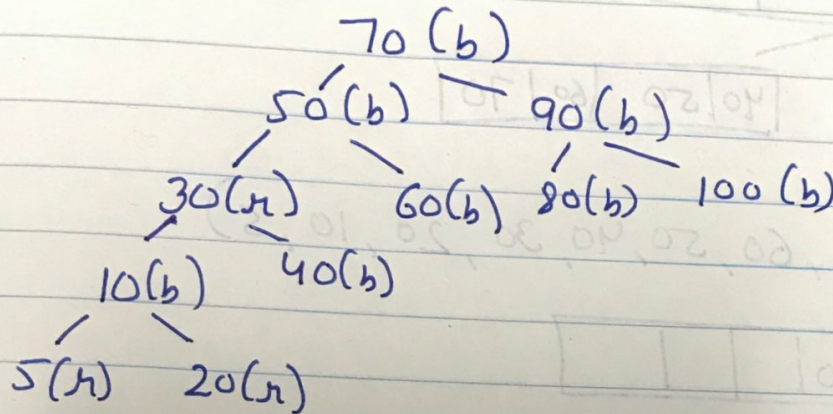 70 (b)
50(b) 90(b)
30(r) 60(b) 80(b) 100(b)
10(b) 40(b)
5(r) 20(r)